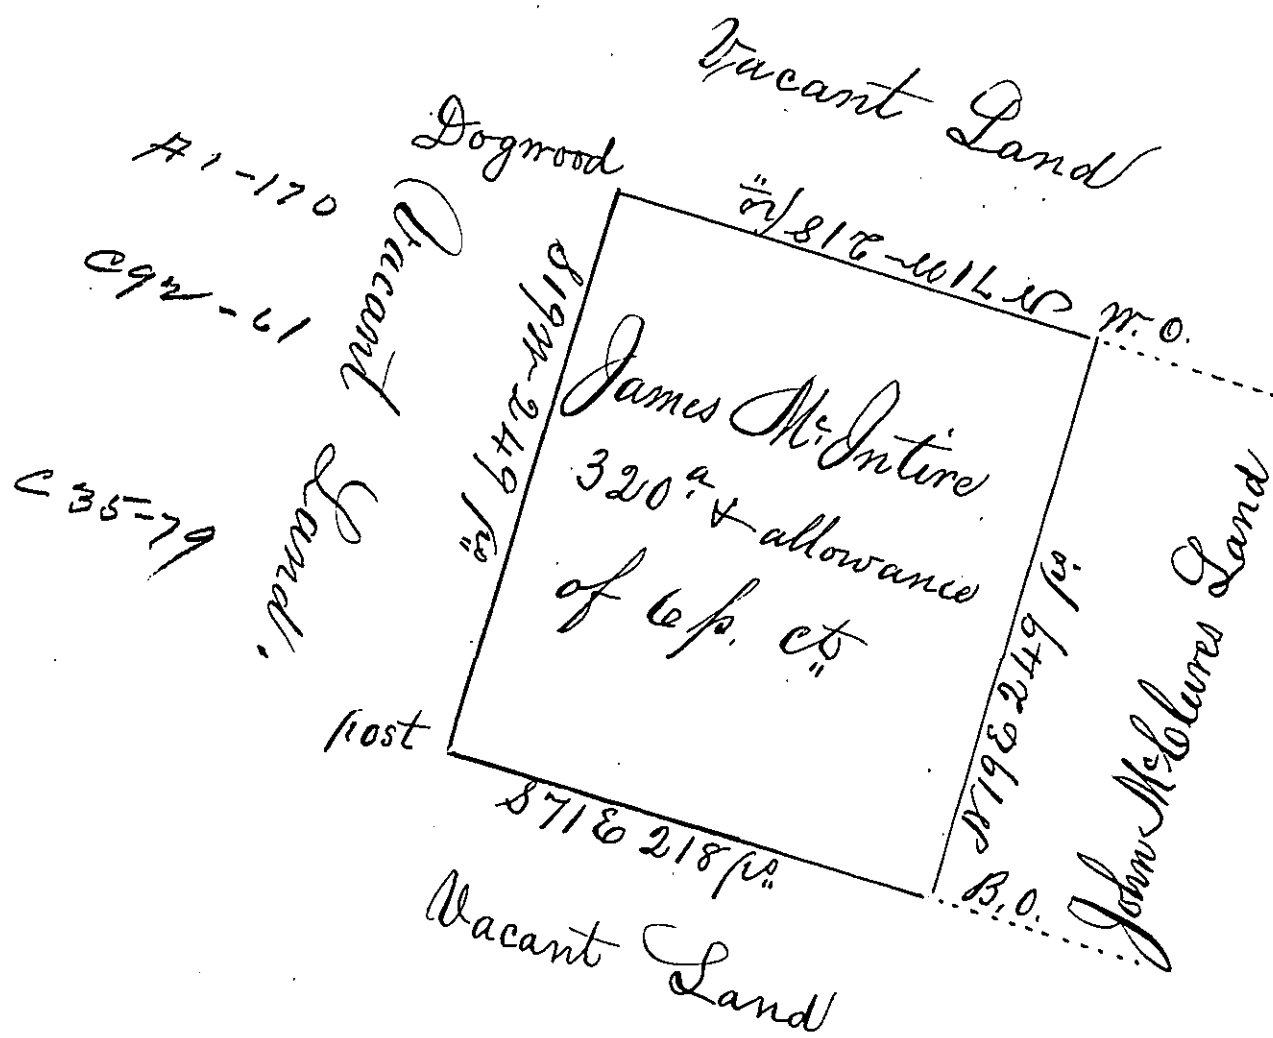 Vacant Land
Dogwood
A1-170
C92-61
C35-79
Vacant Land.
S19W-249 ps
N71W-218 ps
W.O.
James McIntire
320 a. & allowance
of 6 p. cts
N19E 249 ps.
John McClures Land
post
S71E 218 ps
B.O.
Vacant Land